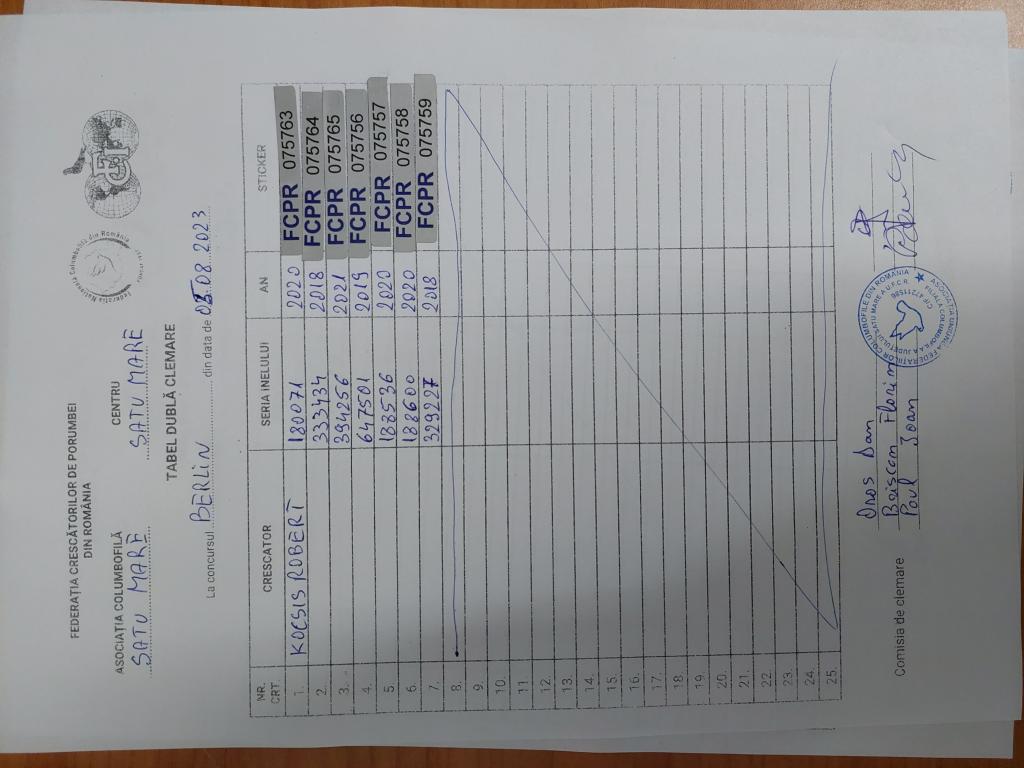 FEDERAȚIA CRESCĂTORILOR DE PORUMBEI
DIN ROMÂNIA
ASOCIAȚIA COLUMBOFILĂ CENTRU
SATU MARE SATU MARE
TABEL DUBLĂ CLEMARE
La concursul BERLIN din data de 05.08.2023
NR. CRT. CRESCATOR SERIA INELULUI AN STICKER
1. KOCSIS ROBERT 180071 2020 FCPR 075763
2. 333434 2018 FCPR 075764
3. 394256 2021 FCPR 075765
4. 647501 2019 FCPR 075756
5. 188536 2020 FCPR 075757
6. 188600 2020 FCPR 075758
7. 329227 2018 FCPR 075759
8.
9.
10.
11.
12.
13.
14.
15.
16.
17.
18.
19.
20.
21.
22.
23.
24.
25.
Comisia de clemare
Dan
Florin
Ioan